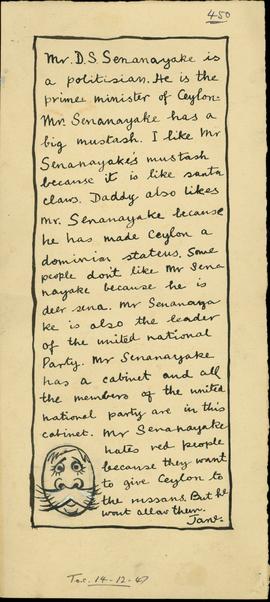 450
Mr. D.S. Senanayake is
a politisian. He is the
prime minister of Ceylon.
Mr. Senanayake has a
big mustash. I like Mr
Senanayake's mustash
because it is like santa
claws. Daddy also likes
Mr. Senanayake because
he has made Ceylon a
dominion stateus. Some
people don't like Mr Sena
nayake because he is
deer sena. Mr Senanaya
ke is also the leader
of the united national
Party. Mr Senanayake
has a cabinet and all
the members of the united
national party are in this
cabinet. Mr Senanayake
hates red people
because they want
to give Ceylon to
the russans. But he
wont allow them.
Jane.
14-12-47